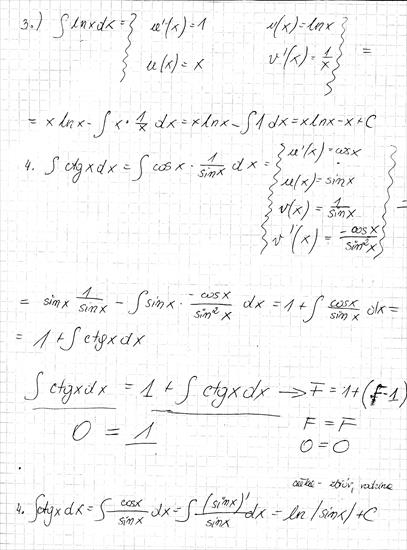 3.) ∫ lnx dx = { u'(x) = 1 v(x) = lnx
u(x) = x v'(x) = 1/x } =
= x lnx - ∫ x · 1/x dx = x lnx - ∫ 1 dx = x lnx - x + C
4. ∫ ctgx dx = ∫ cosx · 1/sinx dx = { u'(x) = cosx
u(x) = sinx
v(x) = 1/sinx
v'(x) = -cosx/sin²x } =
= sinx 1/sinx - ∫ sinx · -cosx/sin²x dx = 1 + ∫ cosx/sinx dx =
= 1 + ∫ ctgx dx
∫ ctgx dx = 1 + ∫ ctgx dx → F = 1 + (F-1)
0 = 1
F = F
0 = 0
całka - zbiór, rodzina
4. ∫ ctgx dx = ∫ cosx/sinx dx = ∫ (sinx)'/sinx dx = ln |sinx| + C